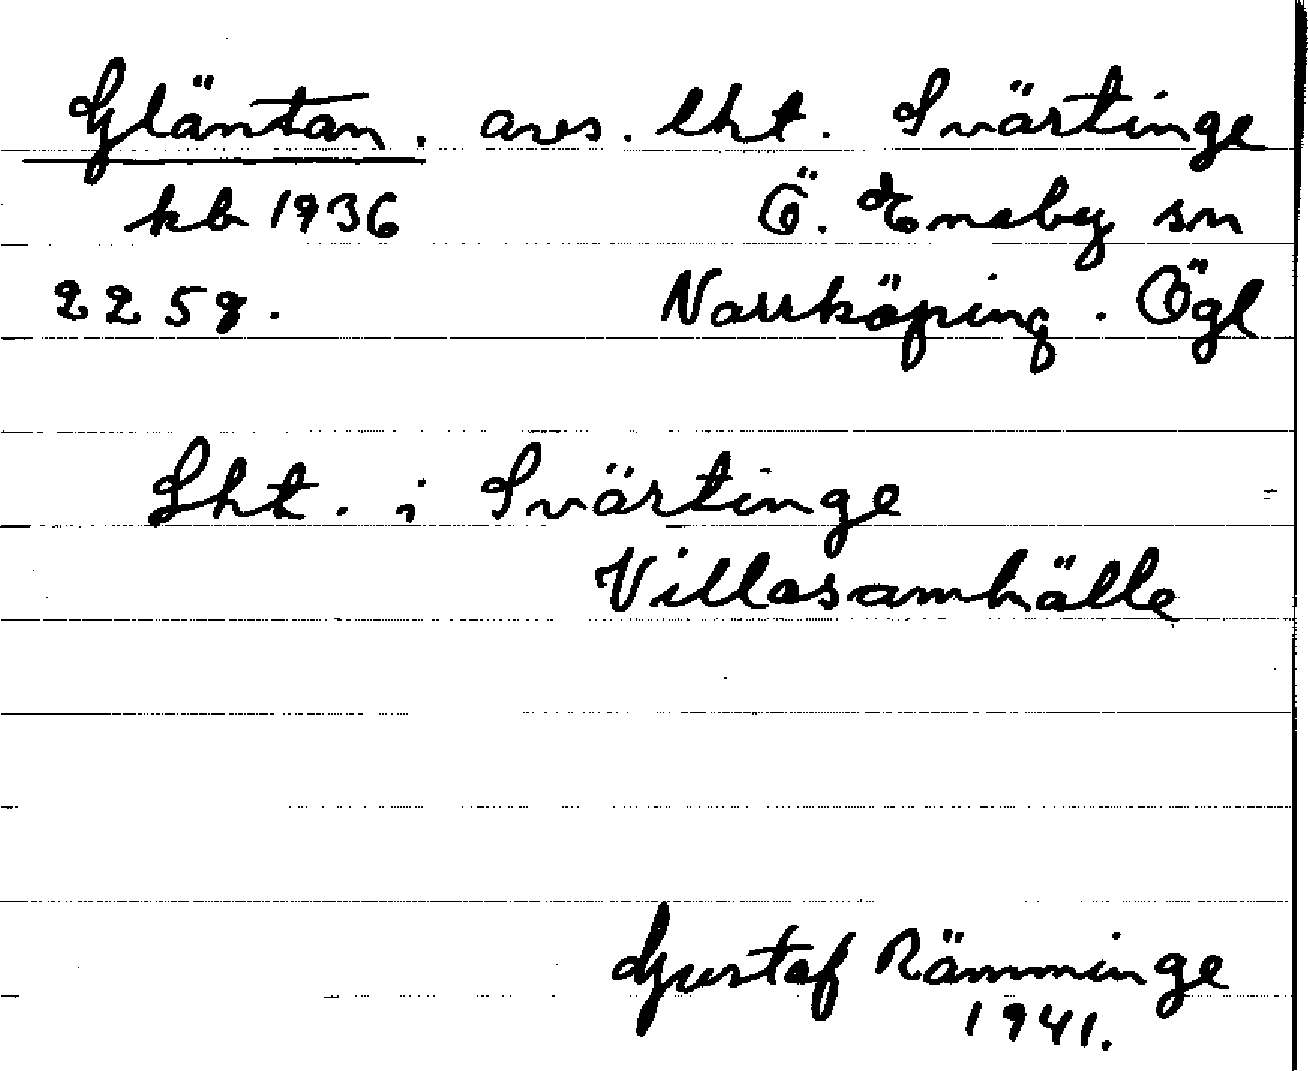 Gläntan. avs. lht. Svärtinge
kb 1936 Ö. Eneby sn
2258. Norrköping. Ögl
Lht. i Svärtinge
Villasamhälle
Gustaf Rämminge
1941.